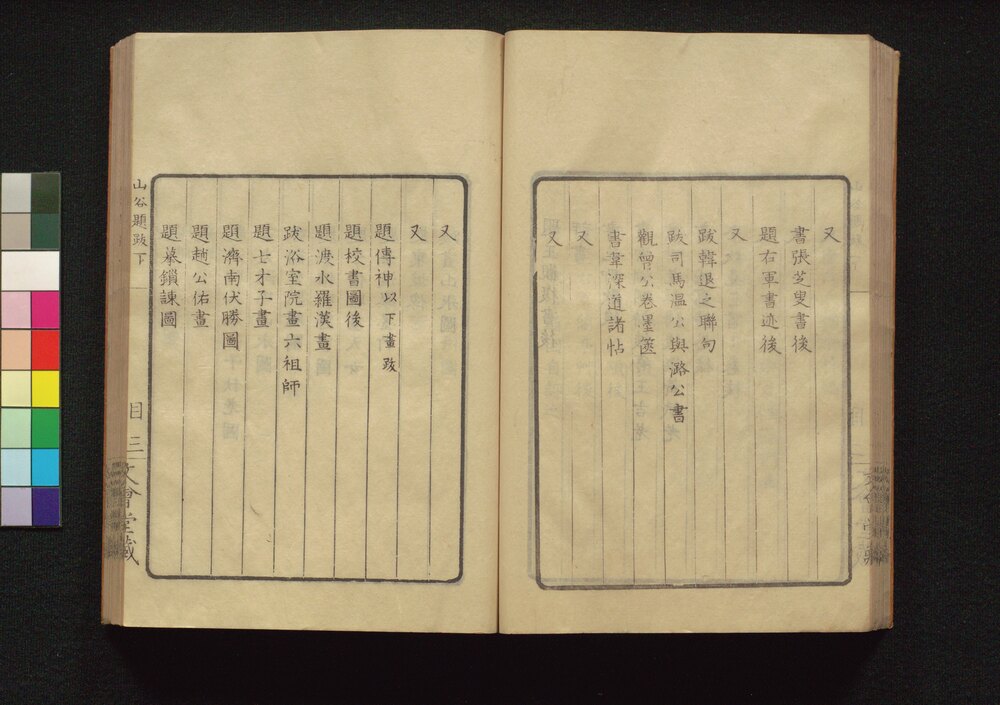 又
書張芝叟書後
題右軍書迹後
又
跋韓退之聯句
跋司馬溫公與潞公書
觀曾公卷墨篋
書韋深道諸帖
又
又
又
又
題傳神以下畫跋
題校書圖後
題渡水羅漢畫
跋浴室院畫六祖師
題七才子畫
題濟南伏勝圖
題趙公佑畫
題摹鎖諫圖
山谷題跋下
目
三
文會堂藏